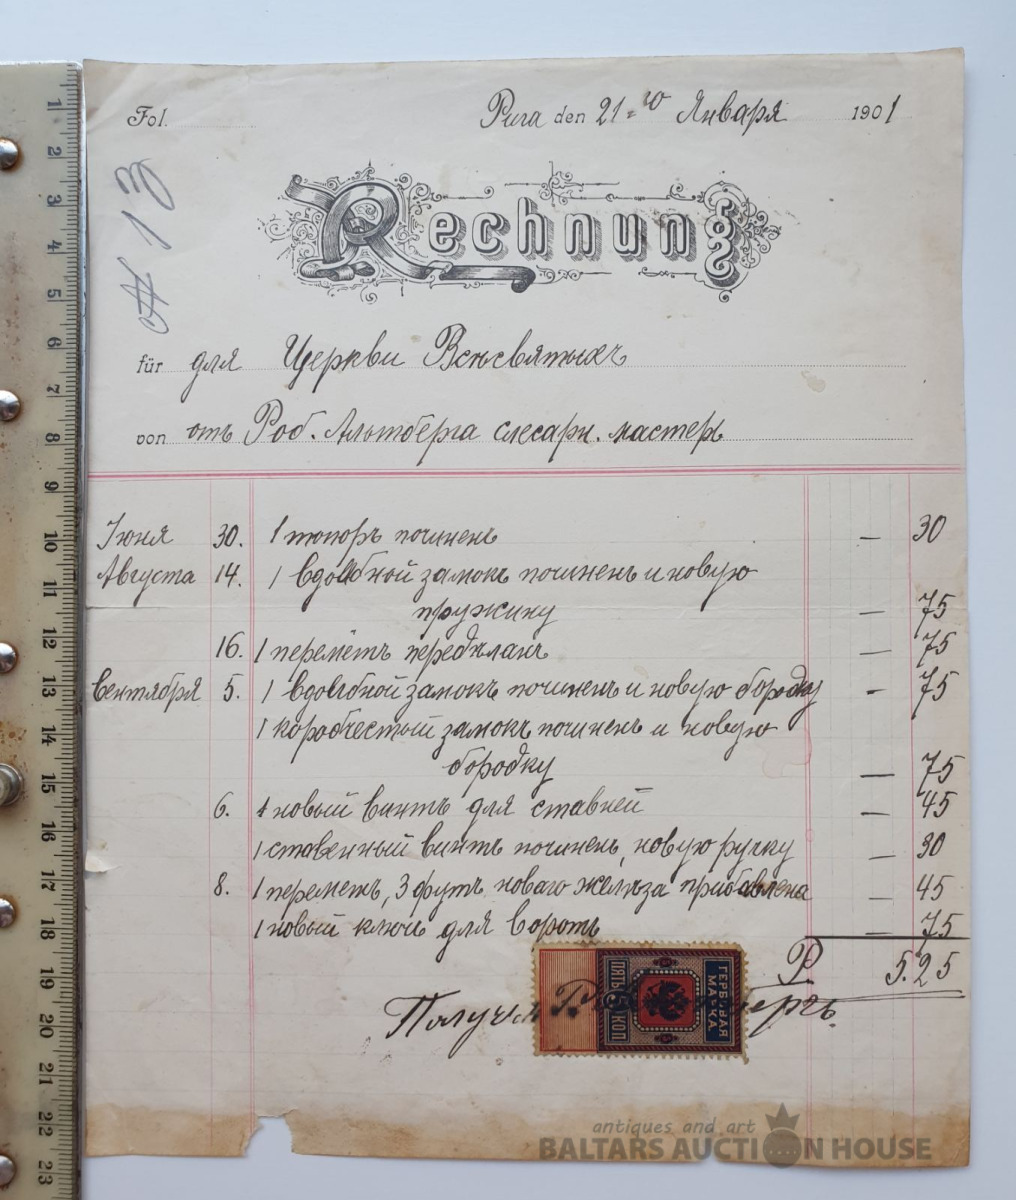 Fol.
Рига den 21=го Января 1901
Rechnung
№ 13
für для Церкви Всѣсвятыхъ
von отъ Роб. Альтберга слесарн. мастеръ
Іюня 30. 1 топоръ починенъ — 30
Августа 14. 1 вдолбной замокъ починенъ и новую
пружину — 75
16. 1 перемётъ передѣланъ — 75
Сентября 5. 1 вдолбной замокъ починенъ и новую бородку - 75
1 коробчестый замокъ починенъ и новую
бородку — 75
6. 1 новый винтъ для ставней — 45
1 ставенный винтъ починенъ, новую ручку — 30
8. 1 переметъ, 3 футъ новаго желѣза прибавлена — 45
1 новый ключъ для воротъ — 75
Р 5.25
Получилъ Р.
ГЕРБОВАЯ
МАРКА
ПЯТЬ 5 КОП
antiques and art
BALTARS AUCTION HOUSE
1
2
3
4
5
6
7
8
9
10
11
12
13
14
15
16
17
18
19
20
21
22
23